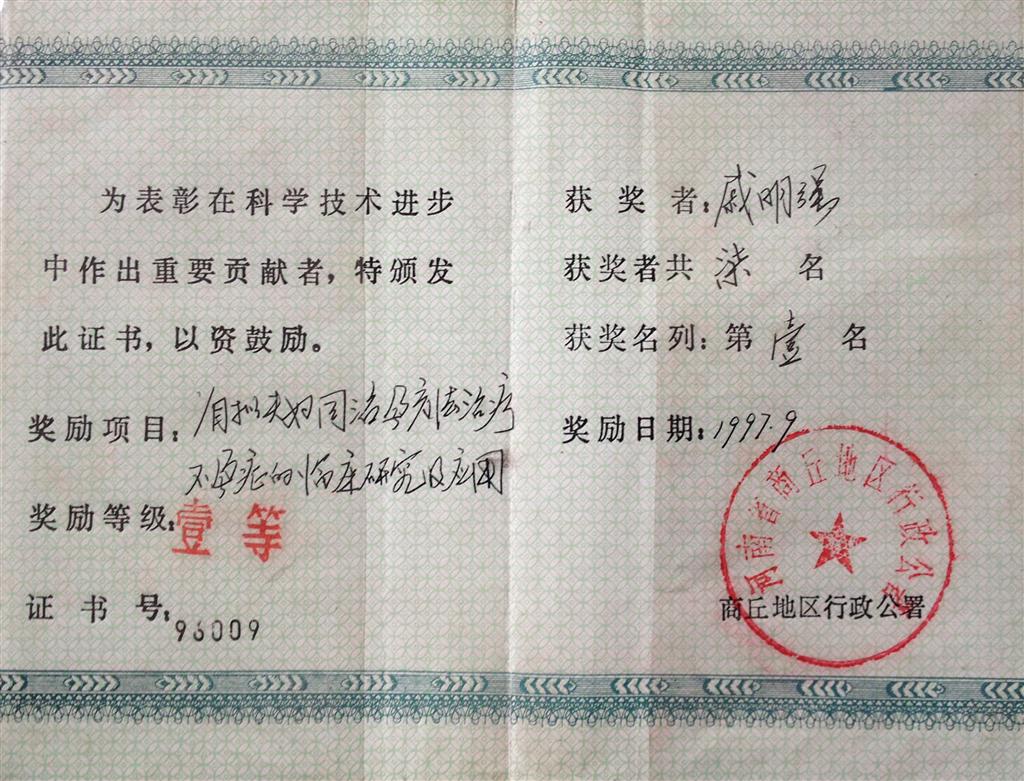 为表彰在科学技术进步
中作出重要贡献者，特颁发
此证书，以资鼓励。
奖励项目：自拟夫妇同治孕方法治疗
不孕症的临床研究及应用
奖励等级：壹等
证书号：96009
获奖者：戚明强
获奖者共柒名
获奖名列：第壹名
奖励日期：1997.9
河南省商丘地区行政公署
商丘地区行政公署